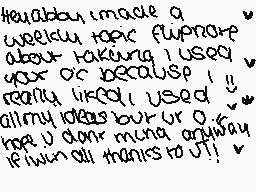 Hey abby i made a
weekly topic flipnote
about taking i used
your oc because i
really liked, i used
all my ideas but ur o.c
hope u dont mind anyway
if i win all thanks to U!!